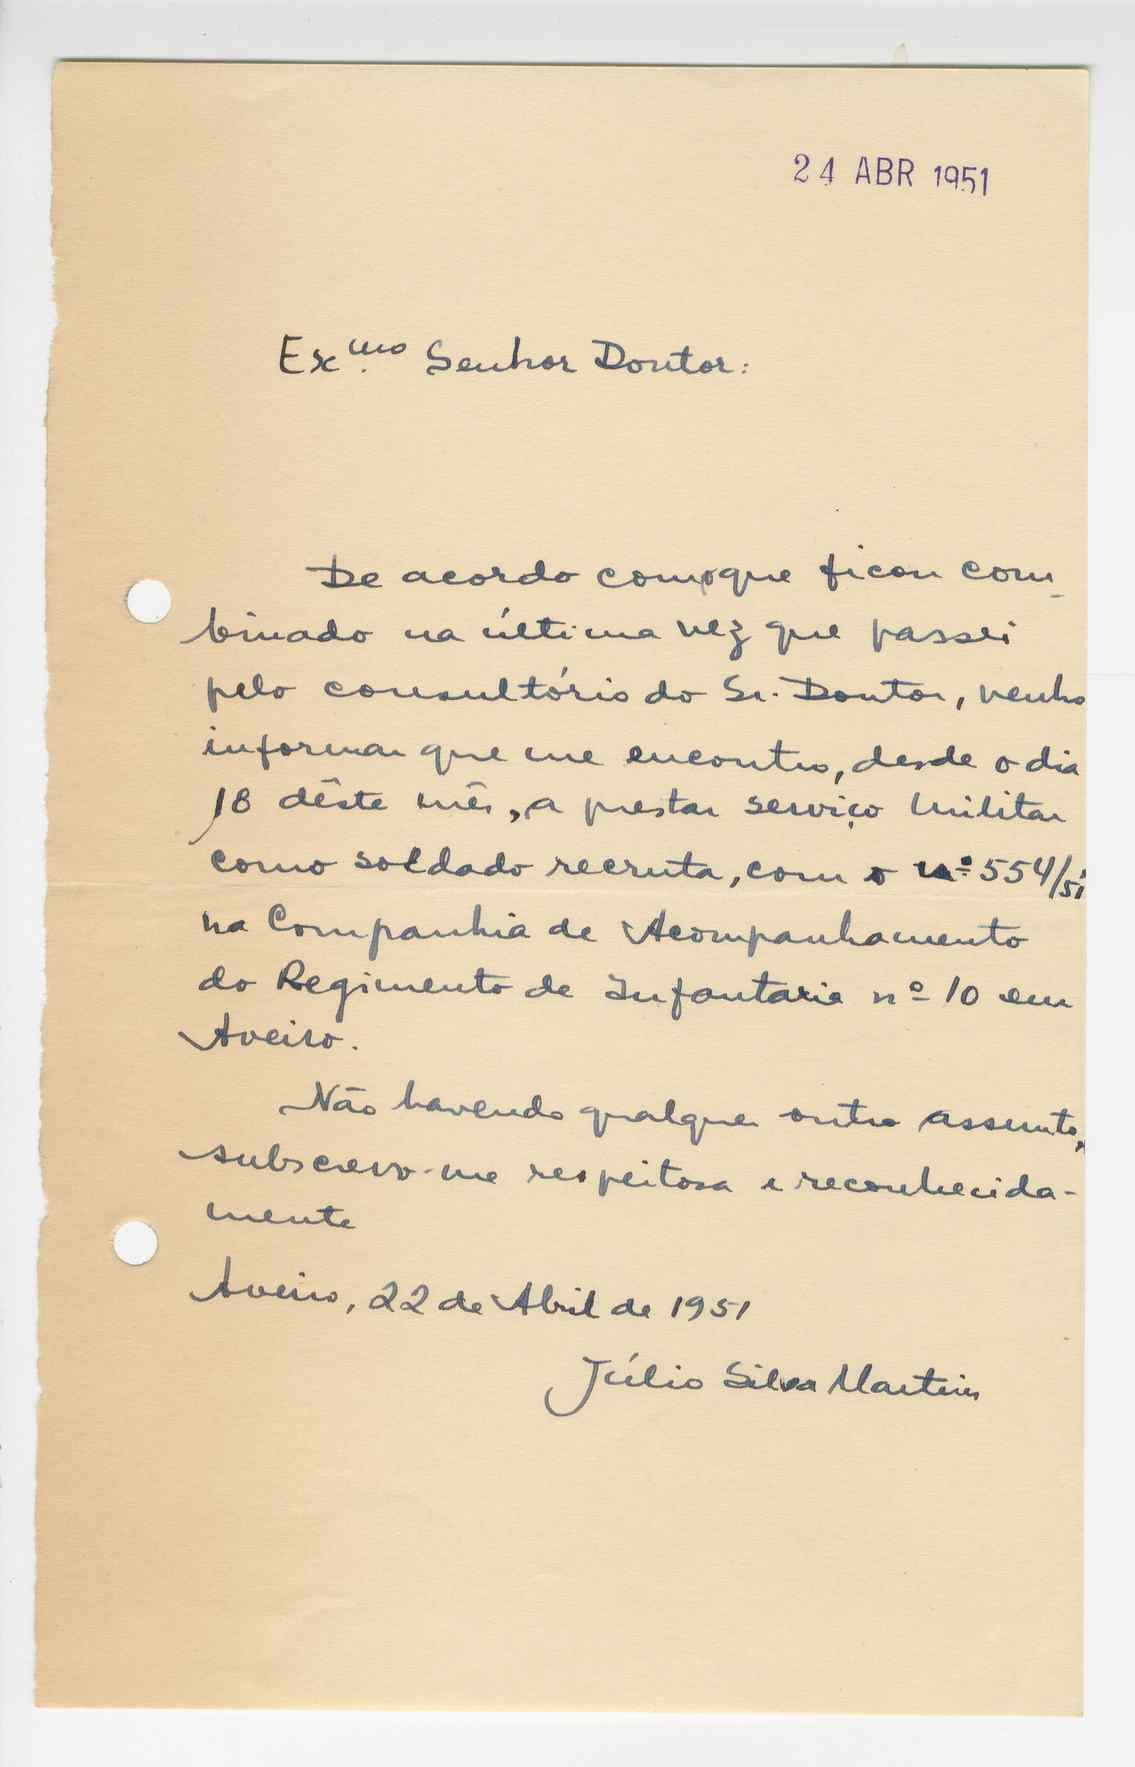 24 ABR 1951
Ex.mo Senhor Doutor:
De acordo com o que ficou com-
binado na última vez que passei
pelo consultório do Sr. Doutor, venho
informar que me encontro, desde o dia
18 dêste mês, a prestar serviço militar
como soldado recruta, com o nº 554/51
na Companhia de Acompanhamento
do Regimento de Infantaria nº 10 em
Aveiro.
Não havendo qualquer outro assunto,
subscrevo-me respeitosa e reconhecida-
mente
Aveiro, 22 de Abril de 1951
Júlio Silva Martins